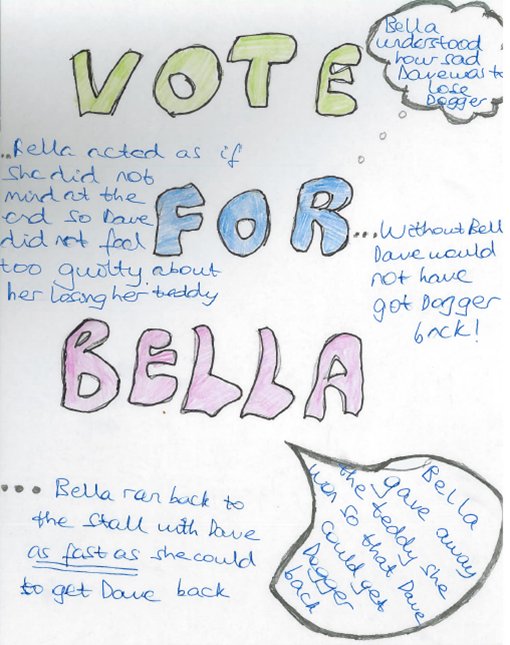 VOTE
FOR
BELLA
Bella
understood
how sad
Dave was to
lose
Dogger
..Bella acted as if
she did not
mind at the
end so Dave
did not feel
too guilty about
her losing her teddy
...Without Bell
Dave would
not have
got Dogger
back!
... Bella ran back to
the stall with Dave
as fast as she could
to get Dave back
Bella
gave away
the teddy she
won so that Dave
could get
Dogger
back